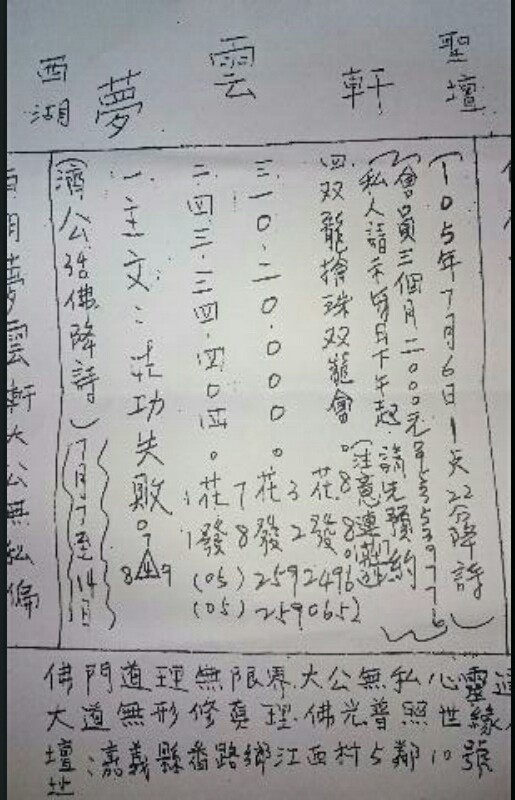 聖壇
西湖
夢雲軒
(105年7月6日1天22分降詩)
(會員三個月二000元
私人請示每日下午起請先預約
四双龍搶珠双龍會。(注意連莊)
三一0.二0.000。花3花8
發2發8
二四三.三四.四0四。花7
發8
一主文:壯功失敗。
7
8 4 9
(05)2592496
(05)2590652
(濟公活佛降詩)7月7至14日
夢雲軒大公無私
佛門道理無限界.大公無私心靈
大道無形修真理.佛光普照世緣
壇址:嘉義縣番路鄉江西村5鄰10號